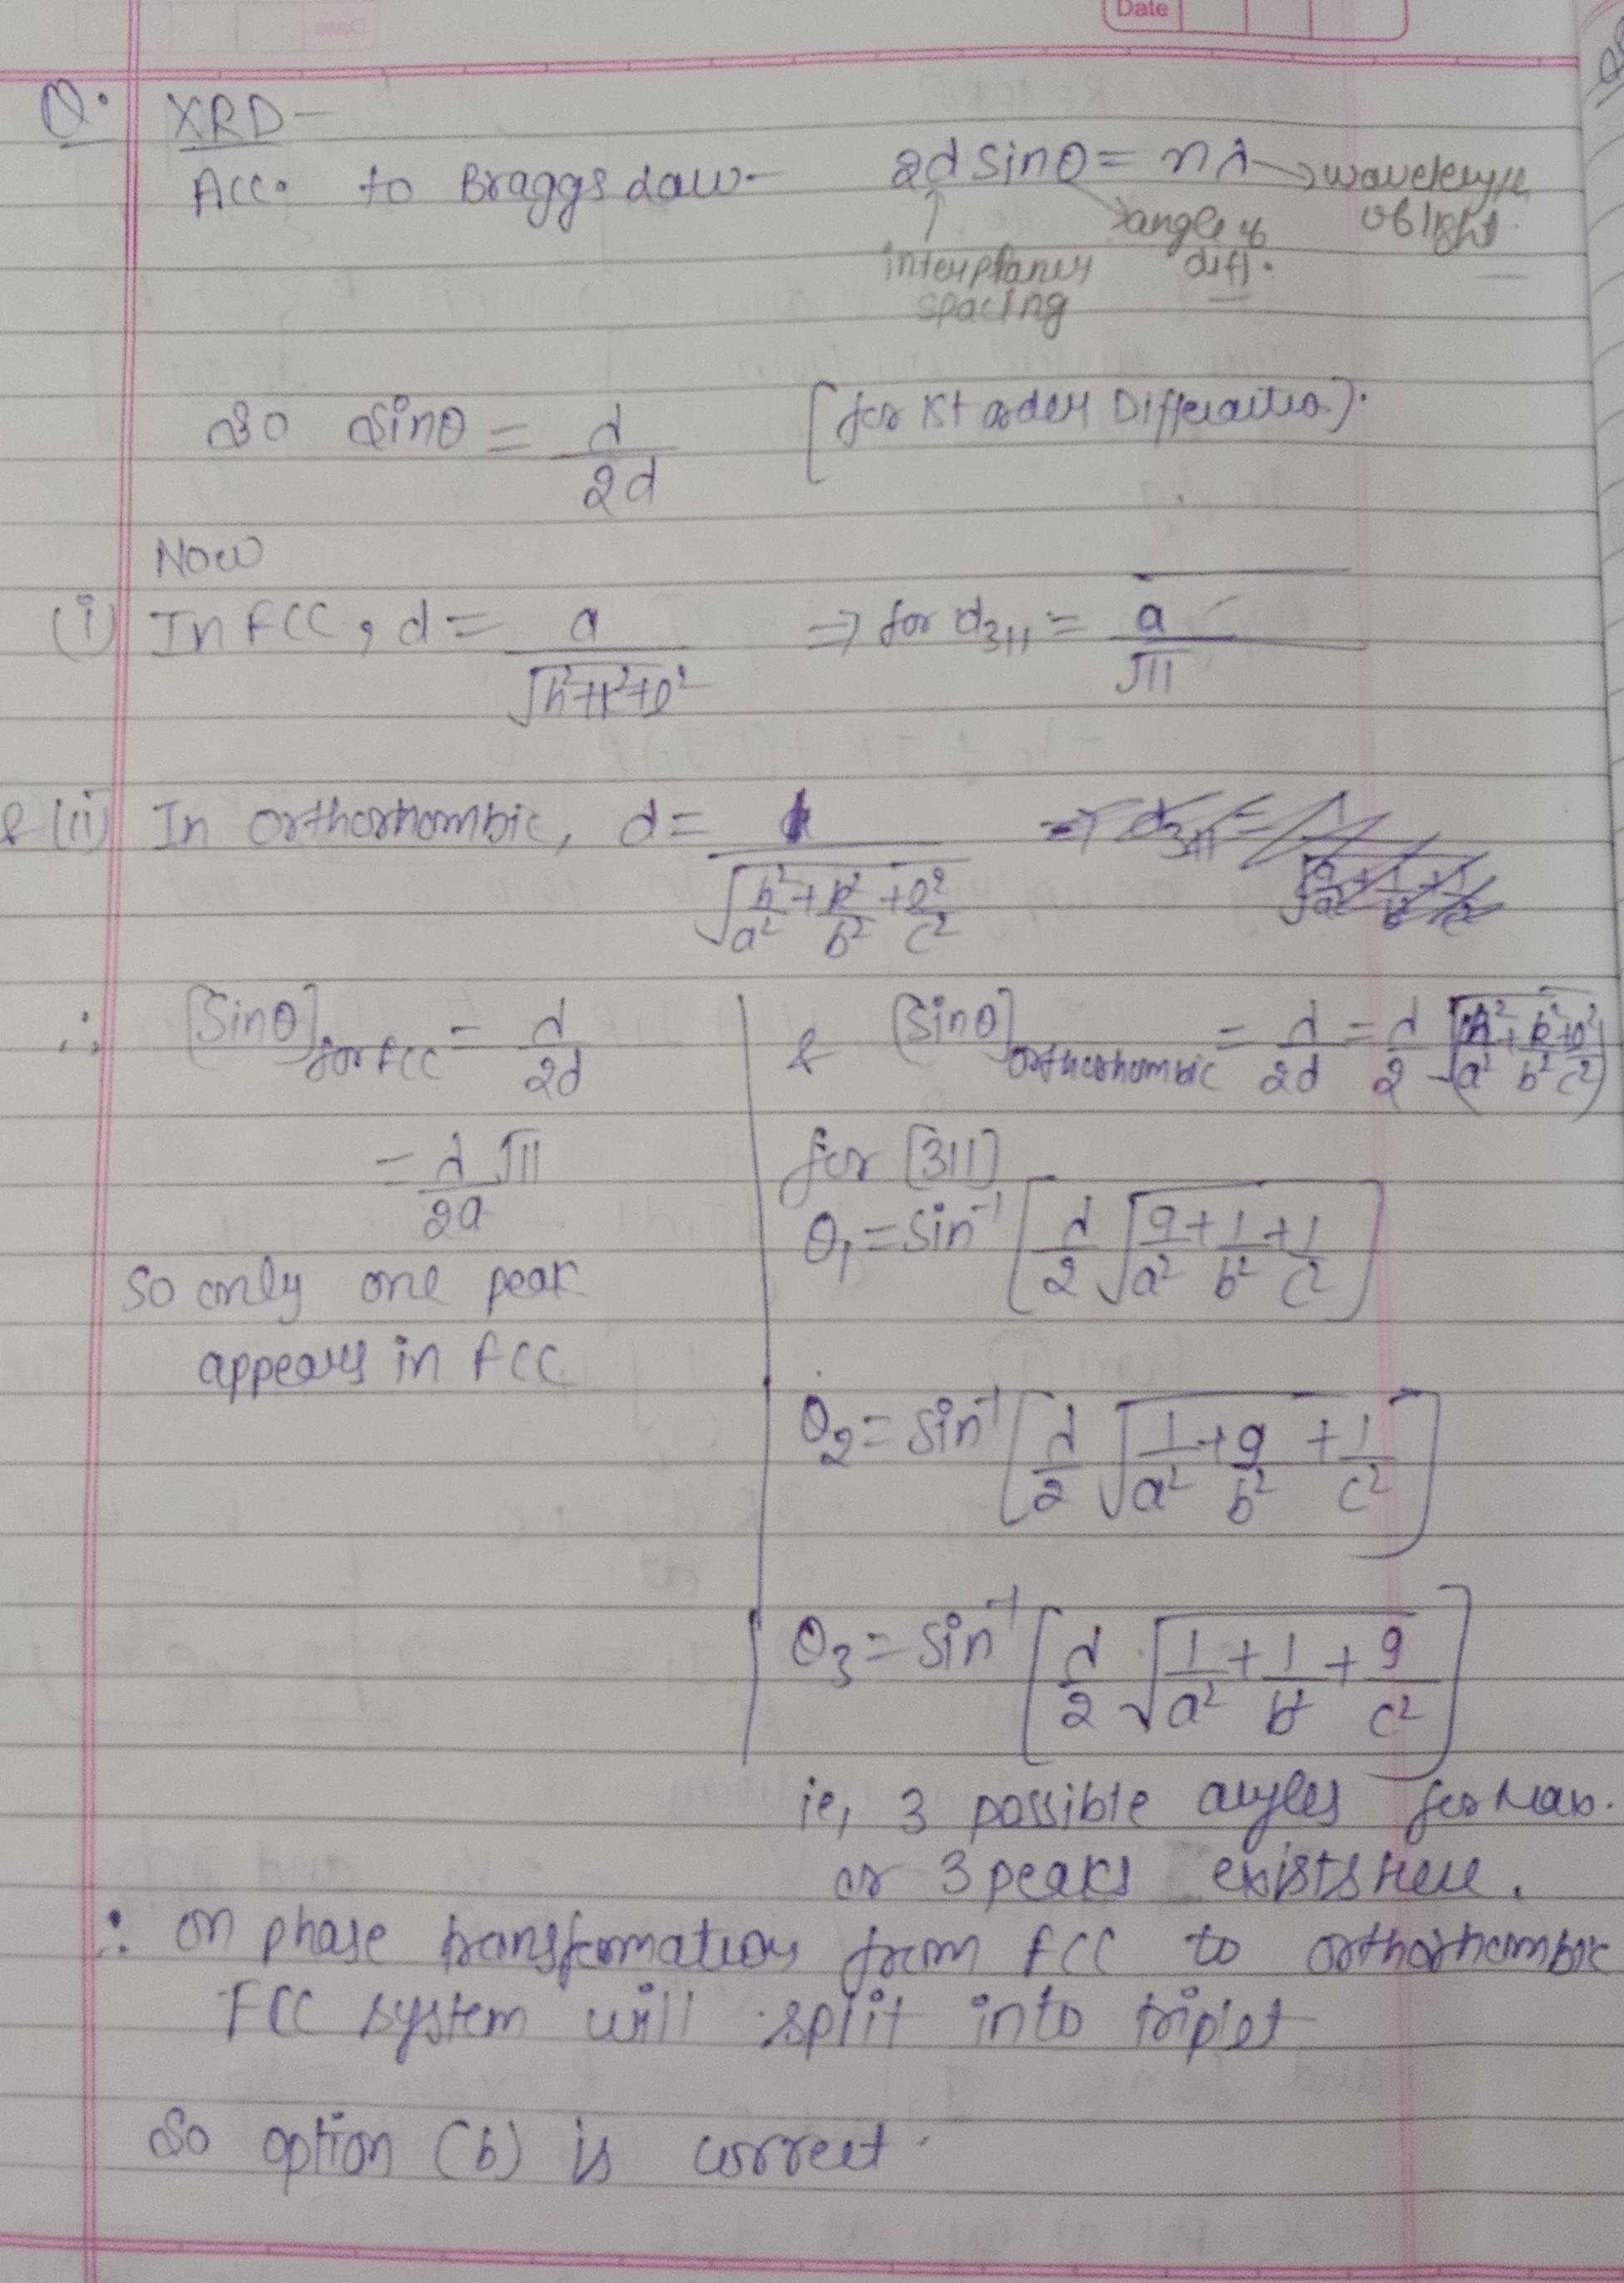 Date
Q. XRD-
Acc. to Braggs Law- 2d sinθ = nλ → wavelength of light
angle of diff.
interplaner spacing
So sinθ = λ/2d [for 1st order Diffraction].
Now
(i) In FCC, d = a/√(h²+k²+l²) ⇒ for d₃₁₁ = a/√11
& (ii) In orthorhombic, d = 1/√(h²/a² + k²/b² + l²/c²)
∴ [Sinθ] for FCC = λ/2d
= λ/2a √11
So only one peak
appears in FCC
& [Sinθ] orthorhombic = λ/2d = λ/2 √(h²/a² + k²/b² + l²/c²)
for [311]
θ₁ = sin⁻¹ [λ/2 √(9/a² + 1/b² + 1/c²)]
θ₂ = sin⁻¹ [λ/2 √(1/a² + 9/b² + 1/c²)]
θ₃ = sin⁻¹ [λ/2 √(1/a² + 1/b² + 9/c²)]
ie, 3 possible angles for Max.
or 3 peaks exists Here.
∴ on phase transformation from FCC to orthorhombic
FCC system will split into triplet
So option (b) is correct.